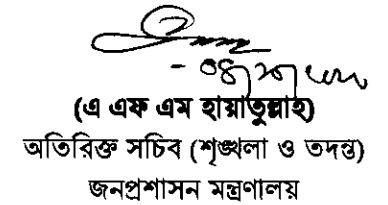 (এ এফ এম হায়াতুল্লাহ)
অতিরিক্ত সচিব (শৃঙ্খলা ও তদন্ত)
জনপ্রশাসন মন্ত্রণালয়